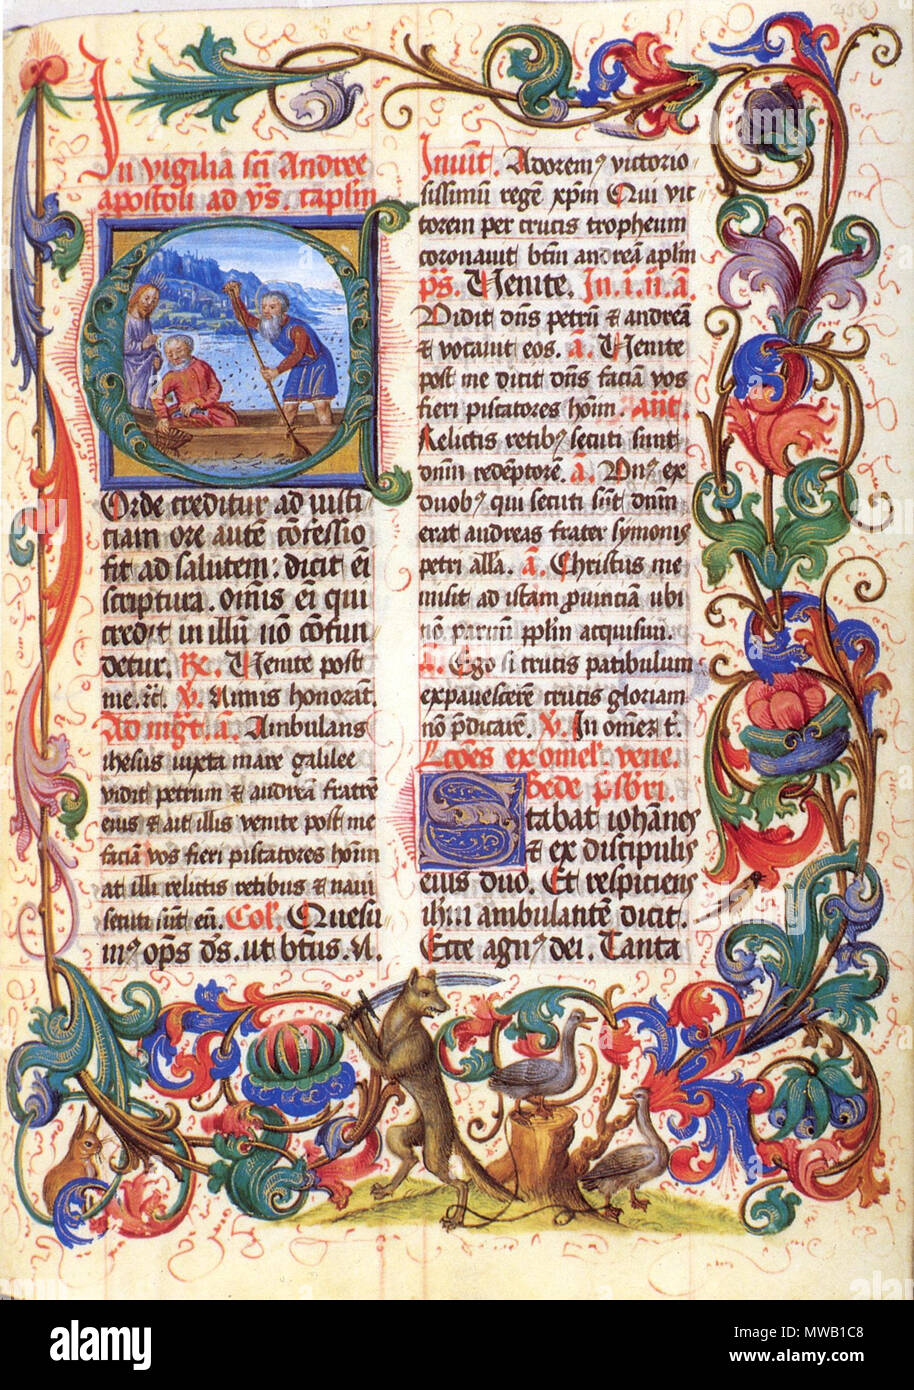 In vigilia sci Andree
apostoli ad vs. caplm
Corde creditur ad iusti
ciam ore autē cōfessio
fit ad salutem: dicit ei
scriptura. Omis ei qui
credit in illū nō cōfun
detur. R. Venite post
me. V. Nimis honorat
Ad mgt. a. Ambulans
ihesus iuxta mare galilee
vidit petrum & andreā fratrē
eius & ait illis venite post me
faciā vos fieri piscatores hoīm
at illi relictis retibus & naui
secuti sūt eū. Col. Quesu
mꝰ ops ds. ut btūs. N.
Inuit. Adoremꝰ victorio
sissimū regē xpm Qui vic
torem per crucis tropheum
coronauit btm andreā aplm
ps. Venite. In. i. n. a
Vidit dns petrū & andreā
& vocauit eos. a. Venite
post me dicit dns faciā vos
fieri piscatores hoīm. Ant.
Relictis retibꝰ secuti sunt
dnm redēptorē. a. Vnꝰ ex
duobꝰ qui secuti sūt dnm
erat andreas frater symonis
petri alla. a. Christus me
misit ad istam prouinciā ubi
nō paruū pplm acquisiui.
a. Ego si crucis patibulum
expauescerē crucis gloriam
nō pdicarē. V. In omēz t.
Lcōes ex omel. vene.
Bede psbri.
Stabat iohānes
& ex discipulis
eius duo. Et respiciens
ihm ambulantē dicit.
Ecce agnꝰ dei. Tanta
356
alamy
Image ID: MWB1C8
www.alamy.com